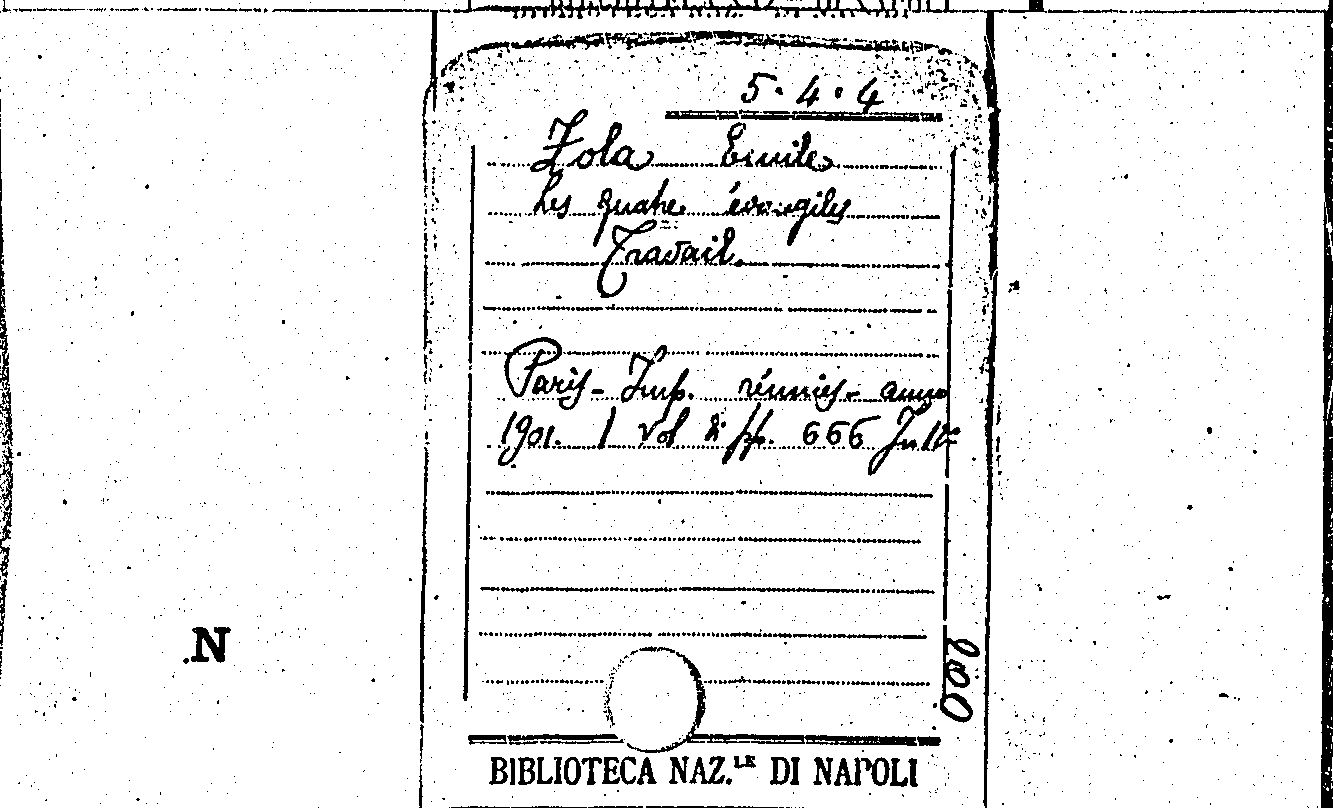 5.4.4
Zola Emile
Les quatre évangiles
Travail.
Paris - Imp. réunies - anno
1901. 1 vol di pp. 666 In 12º
200
N
BIBLIOTECA NAZ.LE DI NAPOLI